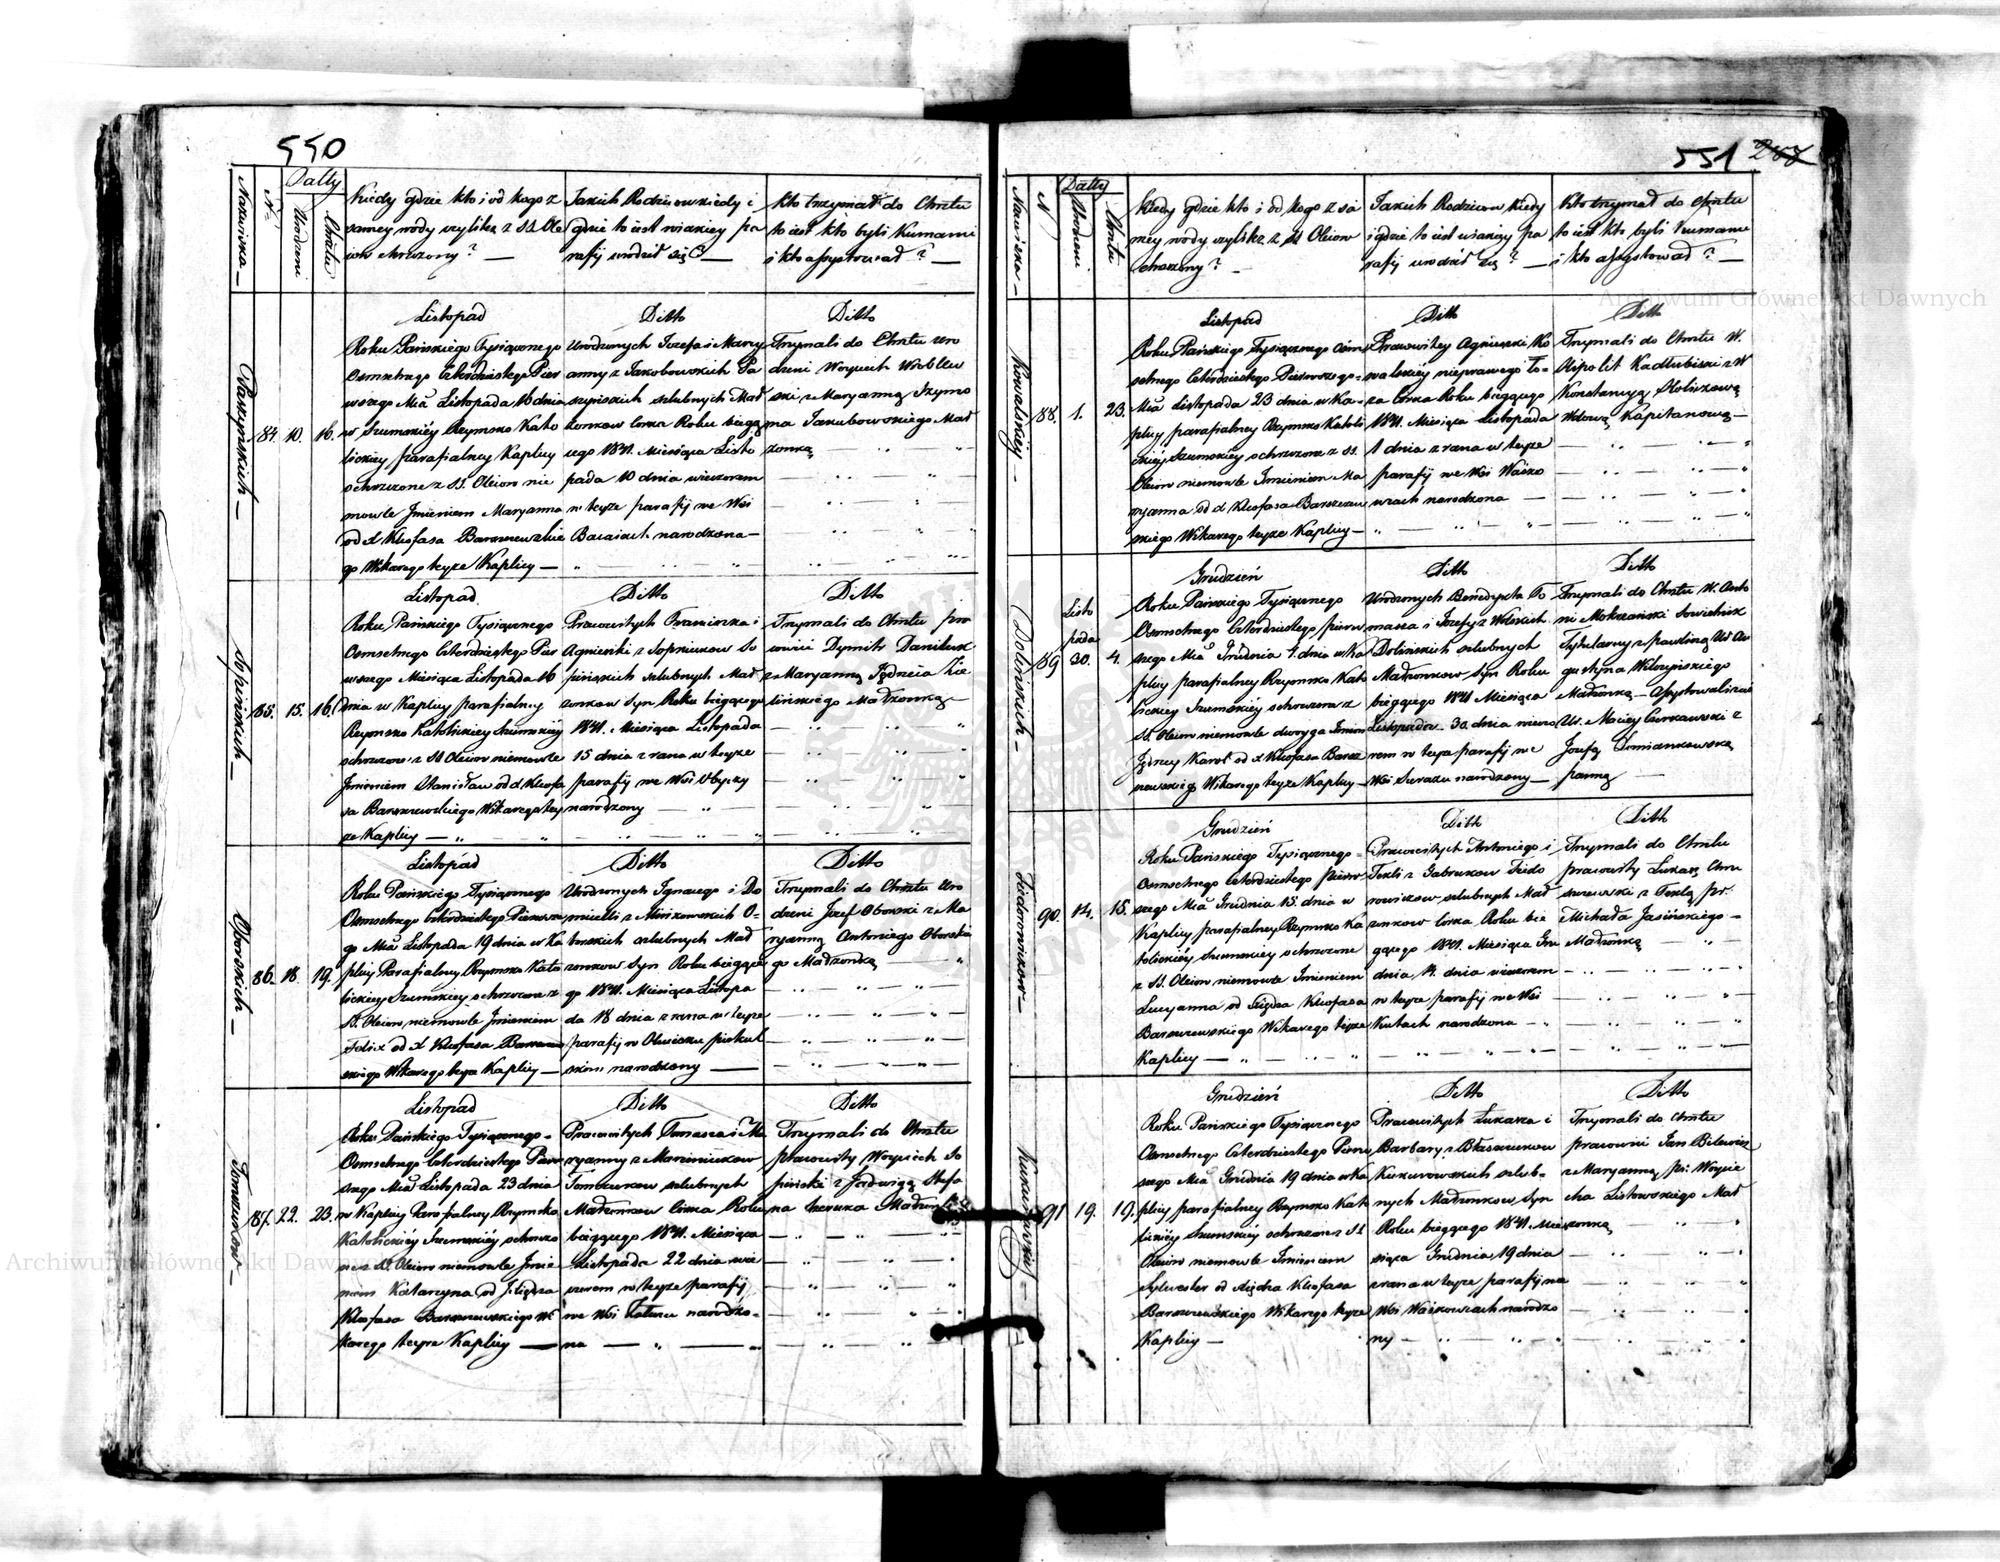 550
Datty
Nazwiska —
N=
Urodzeni
Chrztu
Kiedy gdzie kto i od kogo z
samey wody czylitez z SS. Ole
iow chrzczony? —
Jakich Rodzicow kiedy i
gdzie to iest wiakiey pa
rafij urodził się? —
Kto trzymał do Chrztu
to iest kto byli Kumami
i kto assystował? —
84. 10. 16.
Listopad
Roku Pańskiego Tysiącznego
Osmsetnego Czterdziestego Pier
wszego Mca Listopada 16 dnia
w Szumskiéy Rzymsko Kato
lickiey parafialney Kaplicy
ochrzczone z SS. Oleiow nie
mowle Jmieniem Maryanna
od X Kleofasa Barszczewskie
go Wikarego teyże Kaplicy —
Ditto
Urodzonych Jozefa i Mary
anny z Jakobowskich Pa
szyńskich szlubnych Mał
żonkow corka Roku bieżą
cego 1841. Miesiąca Listo
pada 10 dnia wieczorem
w teyże parafij we Wsi
narodzona —
Ditto
Trzymali do Chrztu uro
dzeni Woyciech Wroblew
ski z Maryanną Szymo
na Jakubowskiego Mał
żonką
Sopińskich —
85. 15. 16.
Listopad
Roku Pańskiego Tysiącznego
Osmsetnego Czterdziestego Pier
wszego Miesiąca Listopada 16
dnia w Kaplicy parafialney
Rzymsko Katolickiey Szumskiéy
ochrzczone z SS Oleiow niemowle
Jmieniem Stanisław od X Kleofa
sa Barszczewskiego Wikarego tey
że Kaplicy —
Ditto
Pracowitych Franciszka i
Agnieszki z So
pińskich szlubnych Mał
żonkow syn Roku bieżącego
1841. Miesiąca Listopada
15 dnia z rana w teyże
parafij we Wsi
narodzony —
Ditto
Trzymali do Chrztu pra
cowici Dymitr Daniluk
z Maryanną Jędrzeia Zie
lińskiego Małżonką —
Oborskich —
86. 18 19.
Listopad
Roku Pańskiego Tysiącznego
Osmsetnego Czterdziestego Pierwsze
go Mca Listopada 19 dnia w Ka
plicy Parafialney Rzymsko Kato
lickiey Szumskiey ochrzczone z
SS. Oleiow niemowle Jmieniem
Felix od X Kleofasa Barszczew
skiego Wikarego teyże Kaplicy —
Ditto
Urodzonych Ignacego i Do
micelli z O=
borskich szlubnych Mał
żonkow syn Roku bieżące
go 1841. Miesiąca Listopa
da 18 dnia z rana w teyże
parafij w
narodzony —
Ditto
Trzymali do Chrztu Uro
dzeni Jozef Oborski z Ma
ryanną Antoniego Oborskie
go Małżonką —
Tomczukow —
87. 22. 23.
Listopad
Roku Pańskiego Tysiącznego =
Osmsetnego Czterdziestego Pierw
szego Mca Listopada 23 dnia
w Kaplicy Parafialney Rzymsko
Katolickiey Szumskiéy ochrzczo
ne z SS. Oleiow niemowle Jmie
niem Katarzyna od J. Xiędza
Kleofasa Barszczewskiego Wi
karego teyże Kaplicy —
Ditto
Pracowitych Tomasza i Ma
ryanny z Marciniukow
Tomczukow szlubnych
Małżonkow corka Roku
bieżącego 1841. Miesiąca
Listopada 22 dnia wie
czorem w teyże parafij
we Wsi narodzo=
na —
Ditto
Trzymali do Chrztu
pracowity Woyciech So
piński z Jadwigą Stefa
na Małżonką
551
Datty
Nazwiska —
N
Urodzeni
Chrztu
Kiedy gdzie kto i od kogo z sa
mey wody czylitez z SS Oleiow
chrzczony? —
Jakich Rodzicow kiedy
i gdzie to iest wiakiey pa
rafij urodził się? —
Kto trzymał do chrztu
to iest kto byli kumami
i kto assystował? —
Kowalskiey —
88. 1. 23.
Listopad
Roku Pańskiego Tysiącznego Osm=
setnego Czterdziestego Pierwszego =
Mca Listopada 23 dnia w Ka=
plicy parafialney Rzymsko Katoli
ckiéy Szumskiey ochrzczone z SS.
Oleiow niemowle Jmieniem Ma
ryanna od X Kleofasa Barszczew
skiego Wikarego teyże Kaplicy —
Ditto
Pracowitey Agnieszki Ko
walskiéy nieprawego ło=
ża corka Roku bieżącego
1841. Miesiąca Listopada
1 dnia z rana w teyże
parafij we Wsi Waśko
wcach narodzona —
Ditto
Trzymali do Chrztu W.
Hipolit Kadłubiski z W
Konstancyą
Wdową Kapitanową —
Dolińskich —
89
Listo
pada
30. 4.
Grudzień
Roku Pańskiego Tysiącznego
Osmsetnego Czterdziestego pierw
szego Mca Grudnia 4. dnia w Ka
plicy parafialney Rzymsko Kato
lickiey Szumskiey ochrzczone z
SS. Oleiow niemowle dwoyga Jmion
Jędrzey Karol od X Kleofasa Barszcz
czewskiego Wikarego teyże Kaplicy —
Ditto
Urodzonych Benedykta To
masza i Jozefy z Wolskich
Dolińskich szlubnych
Małżonkow syn Roku
bieżącego 1841 Miesiąca
Listopada 30 dnia wieczo
rem w teyże parafij we
Wsi Surażu narodzony —
Ditto
Trzymali do Chrztu W. Anto
ni Mokrzański Sowietnik
Tytularny z Pauliną Ur Au
gustyna Wilczyńskiego
Małżonką — Assystowali zaś
Ur. Maciey Ciurkawski z
Jozefą Domiankowską
panną —
Fiedorowiczow —
90. 14. 15.
Grudzień
Roku Pańskiego Tysiącznego =
Osmsetnego Czterdziestego pierw
szego Mca Grudnia 15. dnia w
Kaplicy parafialney Rzymsko Ka
tolickiéy Szumskiey ochrzczone
z SS. Oleiow niemowle Jmieniem
Lucyanna od Xiędza Kleofasa
Barszczewskiego Wikarego teyże
Kaplicy —
Ditto
Pracowitych Antoniego i
Tekli z Gabrukow Fiedo
rowiczow szlubnych Mał
żonkow Corka Roku bie
żącego 1841. Miesiąca Gru
dnia 14. dnia wieczorem
w teyże parafij we Wsi
Kutach narodzona —
Ditto
Trzymali do Chrztu
pracowity Łukasz
z Teklą pr:
Michała Jasińskiego —
Małżonką —
91 19. 19.
Grudzień
Roku Pańskiego Tysiącznego
Osmsetnego Czterdziestego Pierw
szego Mca Grudnia 19 dnia w Ka
plicy parafialney Rzymsko Kato
lickiey Szumskiéy ochrzczone z SS
Oleiow niemowle Jmieniem
Sylwester od Xiędza Kleofasa
Barszczewskiego Wikarego teyże
Kaplicy —
Ditto
Pracowitych Łukasza i
Barbary z Błaszczukow
Kukurowskich szlub=
nych Małżonkow syn
Roku bieżącego 1841. Mie
siąca Grudnia 19 dnia
z rana w teyże parafij we
Wsi Waśkowcach narodzo
ny —
Ditto
Trzymali do Chrztu
pracowici Jan Bilewicz
z Maryanną pr: Woycie
cha Listowskiego Mał
żonką
Archiwum Główne Akt Dawnych
Archiwum Główne Akt Dawnych